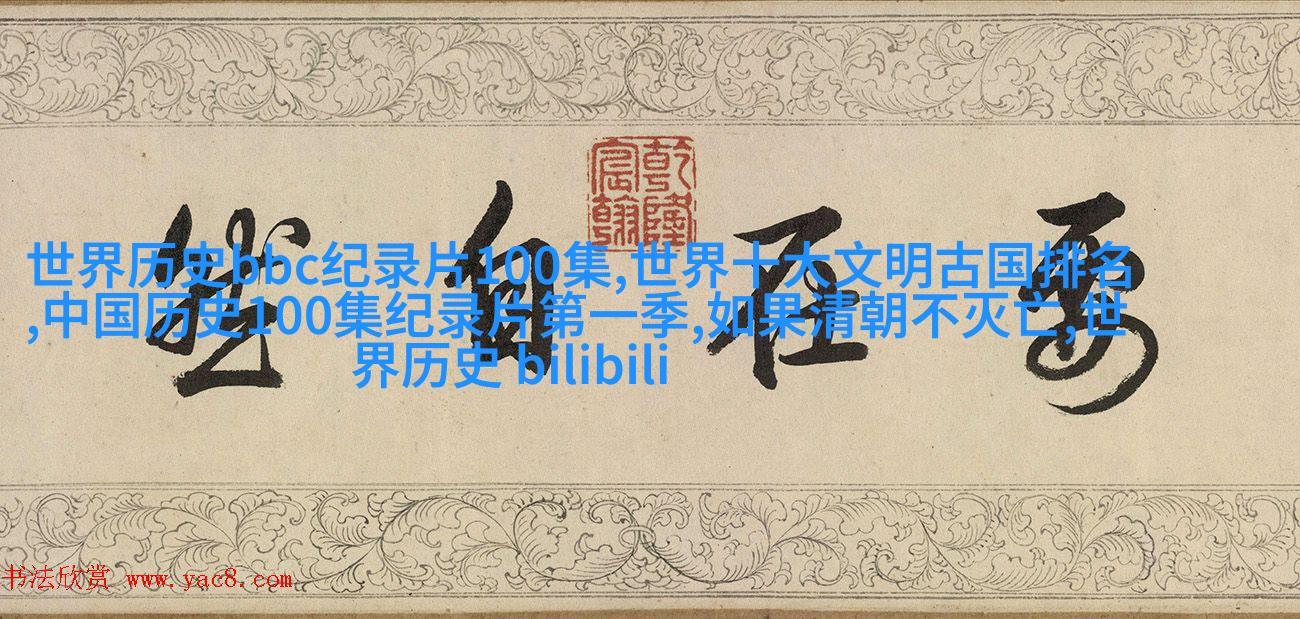 乾隆宸翰
世界历史bbc纪录片100集,世界十大文明古国排名
,中国历史100集纪录片第一季,如果清朝不灭亡,世
界历史 bilibili
书法欣赏 www.yac8.com